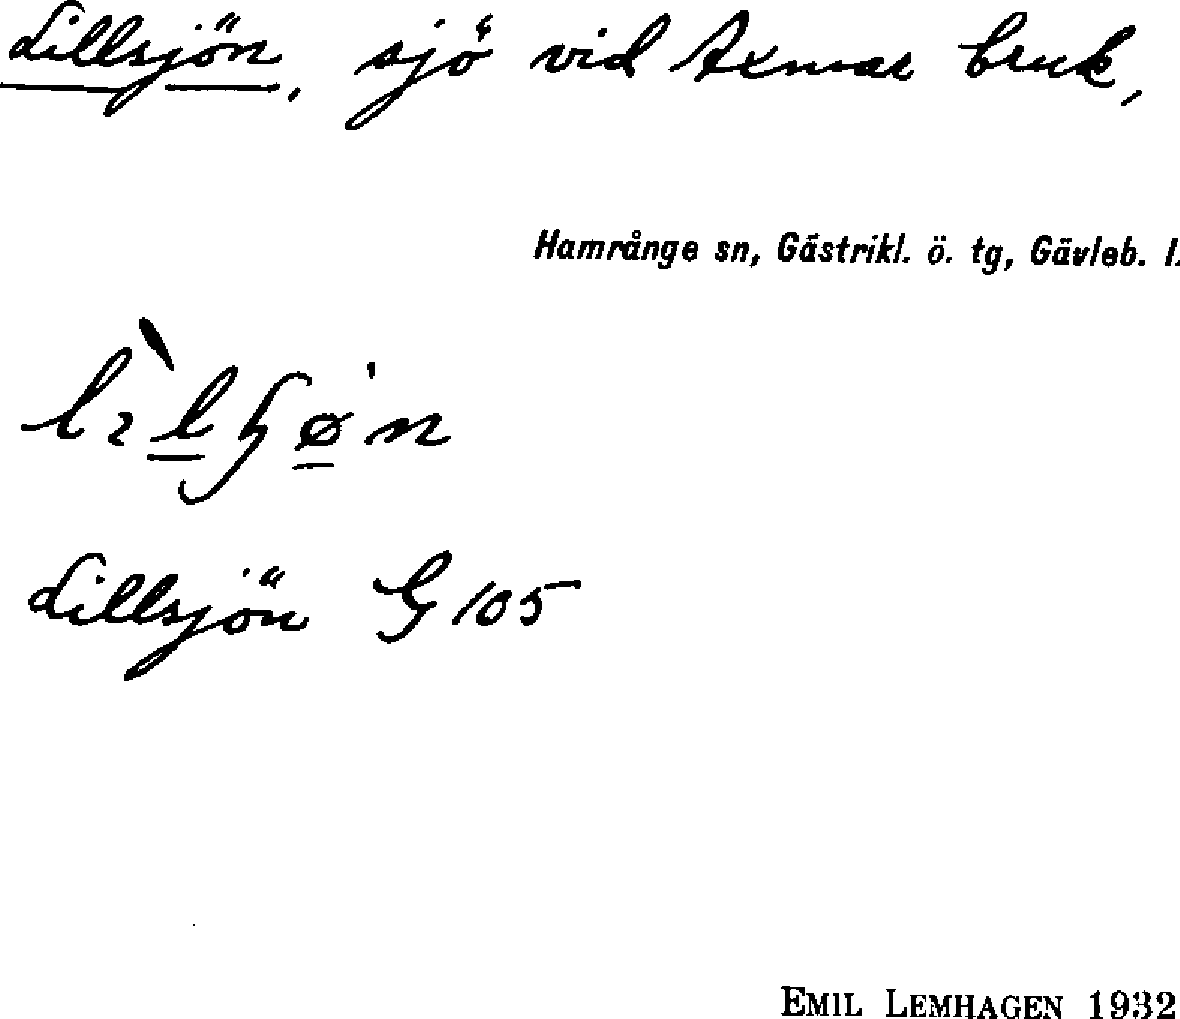 Lillsjön, sjö vid Axmar bruk,
Hamrånge sn, Gästrikl. ö. tg, Gävleb. l.
Lillsjön G 105
EMIL LEMHAGEN 1932